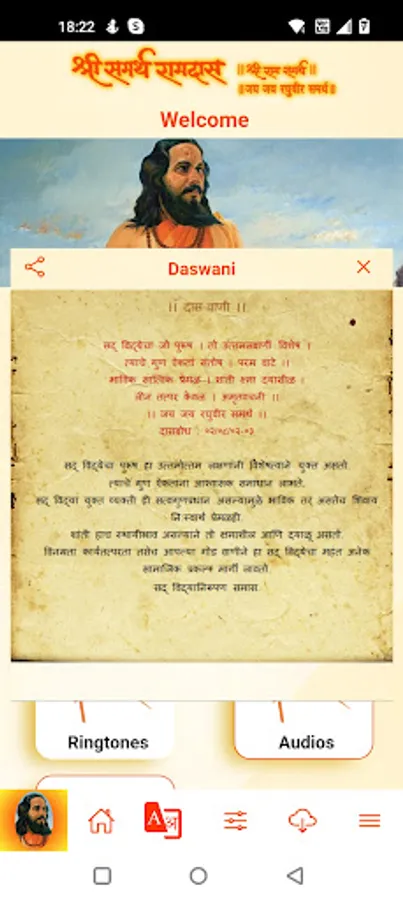 18:22
श्री समर्थ रामदास
॥ श्री राम समर्थ ॥
॥ जय जय रघुवीर समर्थ ॥
Welcome
Daswani
।। दास वाणी ।।
सद् विद्येचा जो पुरुष । तो उत्तमलक्षणी विशेष ।
त्याचे गुण ऐकता संतोष । परम वाटे ।।
भाविक सात्विक प्रेमळ । शांती क्ष्मा दयासीळ ।
लीन तत्पर केवळ । अमृतवचनी ।।
।। जय जय रघुवीर समर्थ ।।
दासबोध : ०२/०८/०२-०३
सद् विद्येचा पुरुष हा उत्तमोत्तम लक्षणांनी विशेषत्वाने युक्त असतो.
त्याचे गुण ऐकताना आश्वासक समाधान लाभते.
सद् विद्या युक्त व्यक्ती ही सत्वगुणप्रधान असल्यामुळे भाविक तर असतेच शिवाय
नि:स्वार्थ प्रेमळही.
शांती हाच स्थायीभाव असल्याने तो क्षमाशील आणि दयाळू असतो.
विनम्रता कार्यतत्परता तसेच आपल्या गोड वाणीने हा सद् विद्येचा महंत अनेक
सामाजिक प्रकल्प मार्गी लावतो.
सद् विद्यानिरूपण समास.
Ringtones
Audios
A अ